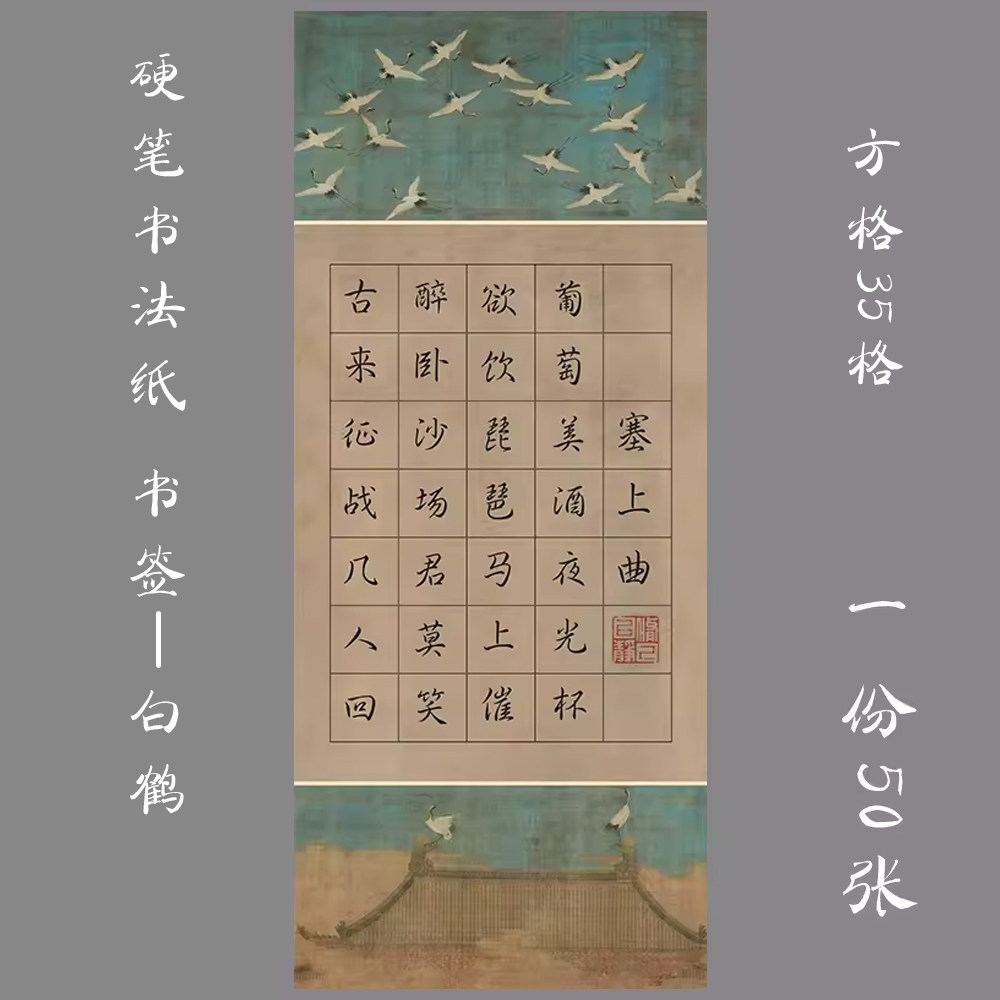 硬笔书法纸 书签—白鹤
塞上曲
葡萄美酒夜光杯
欲饮琵琶马上催
醉卧沙场君莫笑
古来征战几人回
方格35格
一份50张